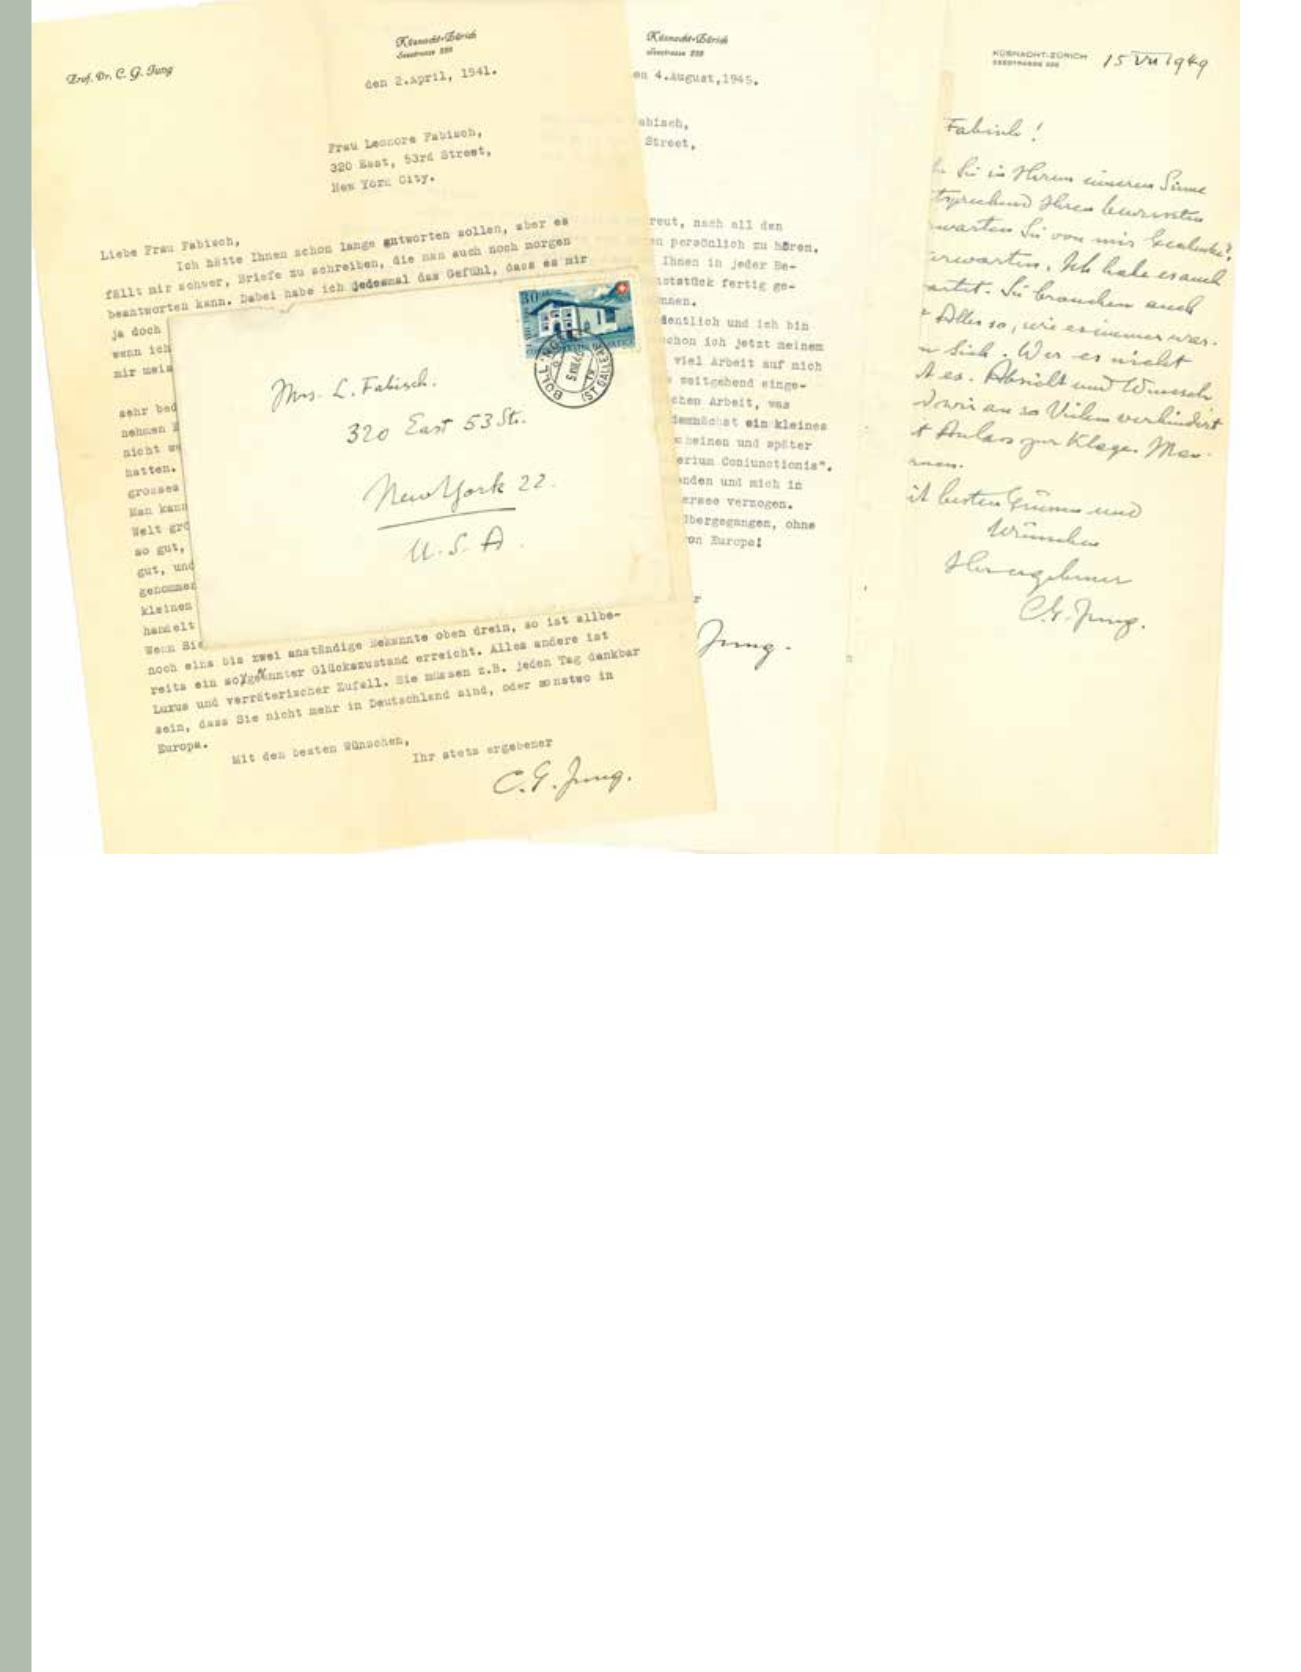 Prof. Dr. C. G. Jung
Küsnacht-Zürich
Seestrasse 228
den 2.April, 1941.
Frau Leonore Fabisch,
320 East, 53rd Street,
New York City.
Liebe Frau Fabisch,
Ich hätte Ihnen schon lange antworten sollen, aber es
fällt mir schwer, Briefe zu schreiben, die man auch noch morgen
beantworten kann. Dabei habe ich jedesmal das Gefühl, dass es mir
ja doch
wenn ich
mir meis
sehr bed
nehmen
nicht we
hatten.
grosses
Man kann
Welt grö
so gut,
gut, und
genommen
kleinen
handelt
Wenn Sie
noch eins bis zwei anständige Bekannte oben drein, so ist allbe-
reits ein sogenannter Glückszustand erreicht. Alles andere ist
Luxus und verräterischer Zufall. Sie müssen z.B. jeden Tag dankbar
sein, dass Sie nicht mehr in Deutschland sind, oder sonstwo in
Europa.
Mit den besten Wünschen,
Ihr stets ergebener
C.G. Jung.
Mrs. L. Fabisch.
320 East 53 Str.
New York 22.
U.S.A.
30
BOLLINGEN
(ST. GALLEN)
Küsnacht-Zürich
Seestrasse 228
en 4.August,1945.
abisch,
Street,
reut, nach all den
en persönlich zu hören.
Ihnen in jeder Be-
otstück fertig ge-
nnen.
dentlich und ich bin
chon ich jetzt meinem
viel Arbeit auf mich
weitgehend einge-
chen Arbeit, was
demnächst ein kleines
scheinen und später
erium Coniunctionis".
anden und mich in
ersee verzogen.
bergegangen, ohne
von Europa!
r
Jung.
KÜSNACHT-ZÜRICH
SEESTRASSE 228
15 VII 1949
Fabisch!
Sie in Ihrem inneren Sinne
tsprechend Ihren bewussten
warten Sie von mir Gedanke?
erwarten. Ich habe es auch
artet. Sie brauchen auch
Alles so, wie es immer war.
n Sich. Wer es nicht
t es. Absicht und Wunsch
d wir an so Vielem verhindert
t Anlass zur Klage. Man
it besten Grüssen und
Wünschen
Ihr ergebener
C.G. Jung.